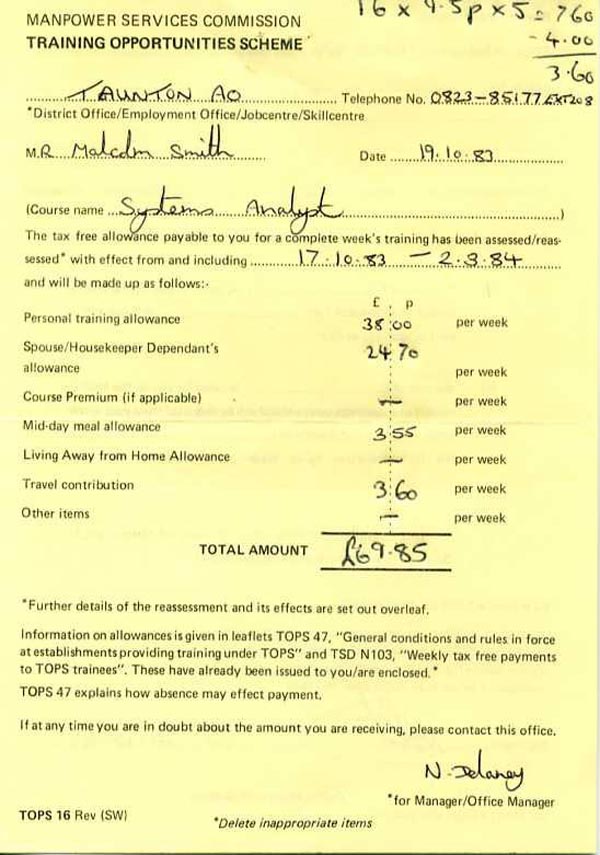 MANPOWER SERVICES COMMISSION
TRAINING OPPORTUNITIES SCHEME
16 x 9.5p x 5 = 760
- 4.00
3.60
TAUNTON AO Telephone No. 0823-85177 EXT 208
*District Office/Employment Office/Jobcentre/Skillcentre
M.R. Malcolm Smith Date 19.10.83
(Course name Systems Analyst)
The tax free allowance payable to you for a complete week's training has been assessed/reas-
sessed* with effect from and including 17.10.83 - 2.3.84
and will be made up as follows:-
£ . p
Personal training allowance 38:00 per week
Spouse/Housekeeper Dependant's 24:70
allowance per week
Course Premium (if applicable) — per week
Mid-day meal allowance 3:55 per week
Living Away from Home Allowance — per week
Travel contribution 3:60 per week
Other items — per week
TOTAL AMOUNT £69.85
*Further details of the reassessment and its effects are set out overleaf.
Information on allowances is given in leaflets TOPS 47, "General conditions and rules in force
at establishments providing training under TOPS" and TSD N103, "Weekly tax free payments
to TOPS trainees". These have already been issued to you/are enclosed.*
TOPS 47 explains how absence may effect payment.
If at any time you are in doubt about the amount you are receiving, please contact this office.
N. Delaney
*for Manager/Office Manager
TOPS 16 Rev (SW)
*Delete inappropriate items